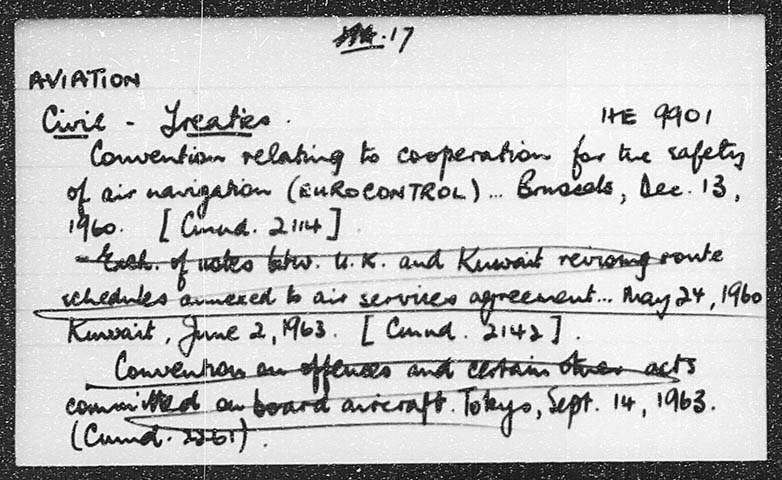 .17
AVIATION
Civil - Treaties. HE 9901
Convention relating to cooperation for the safety
of air navigation (EUROCONTROL)... Brussels, Dec. 13,
1960. [Cmnd. 2114]
- Exch. of notes betw. U.K. and Kuwait revising route
schedules annexed to air services agreement... May 24, 1960
Kuwait, June 2, 1963. [Cmnd. 2142].
Convention on offences and certain other acts
committed on board aircraft. Tokyo, Sept. 14, 1963.
(Cmnd. 2261).